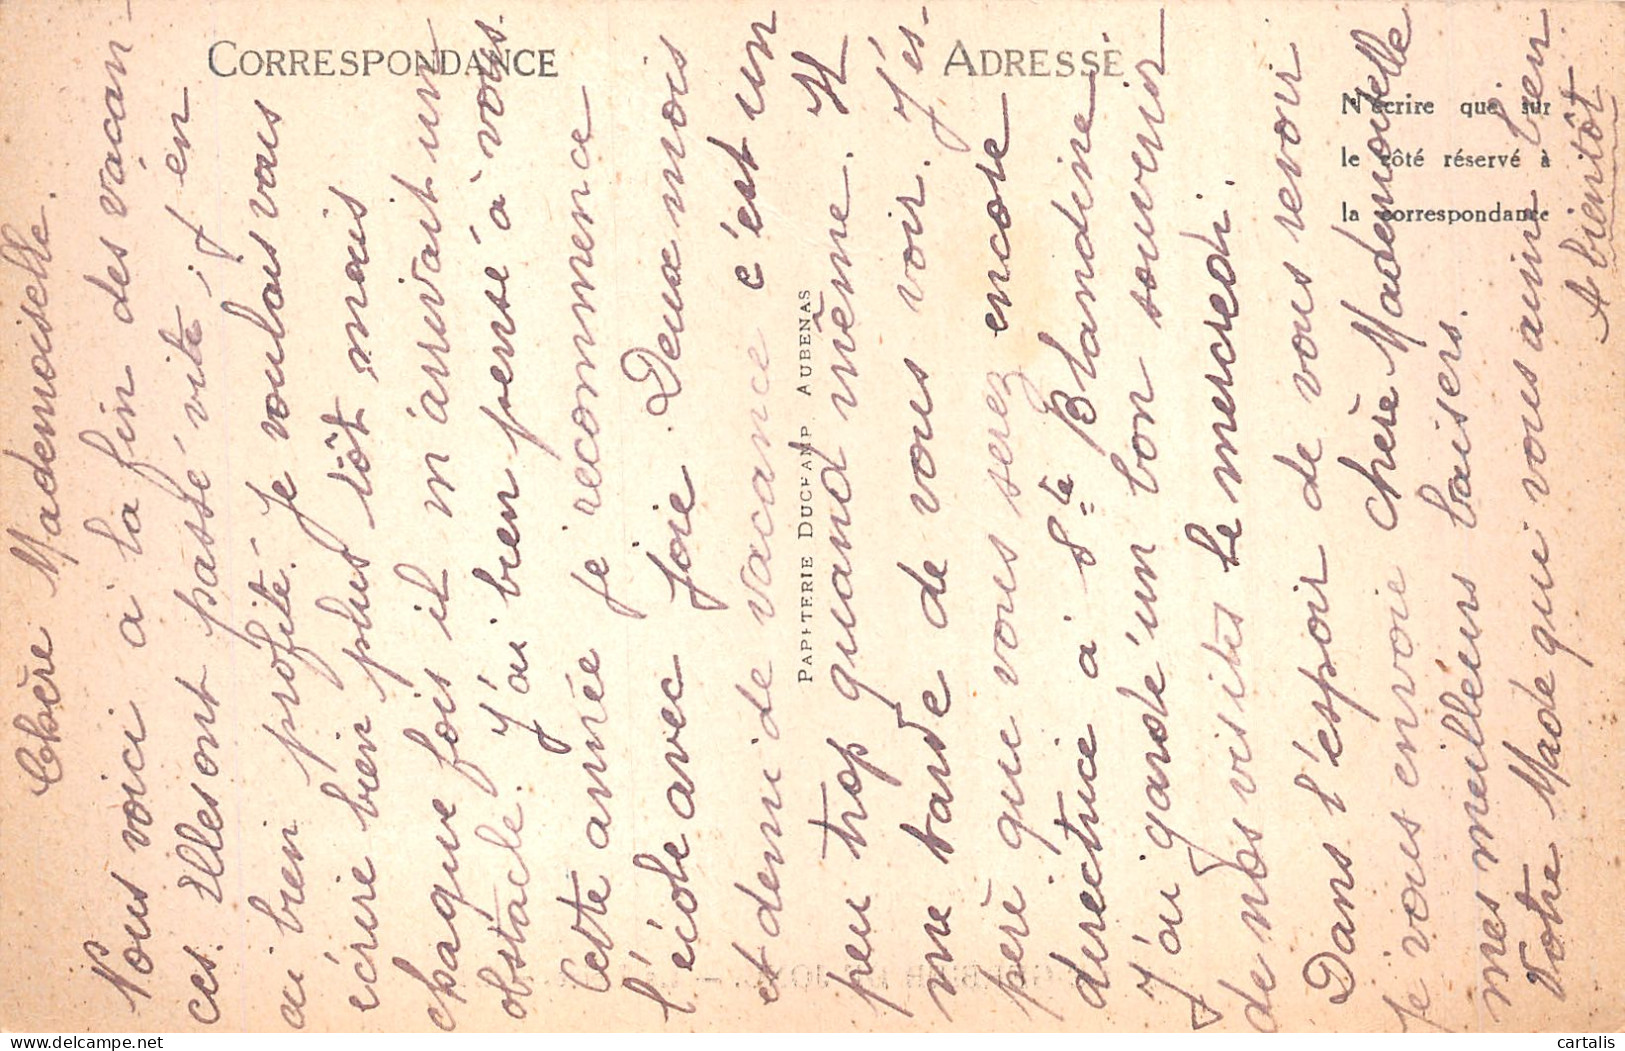 CORRESPONDANCE
ADRESSE
N'écrire que sur
le côté réservé à
la correspondance
PAPETERIE DUCHAMP AUBENAS
Chère Mademoiselle.
Nous voici à la fin des vacan-
ces. Elles ont passé vite, j'en
ai bien profité. Je voulais vous
écrire bien plus tôt mais
chaque fois il m'arrivait un
obstacle. J'ai bien pensé à vous.
Cette année je recommence
l'école avec joie. Deux mois
et demi de vacance c'est un
peu trop quand même. Il
me tarde de vous voir. J'es-
père que vous serez encore
directrice à Ste Blandine
J'ai gardé un bon souvenir
de nos visites le mercredi.
Dans l'espoir de vous revoir
je vous envoie chère Mademoiselle
mes meilleurs baisers.
Votre Made qui vous aime bien.
A bientôt
cartalis
www.delcampe.net